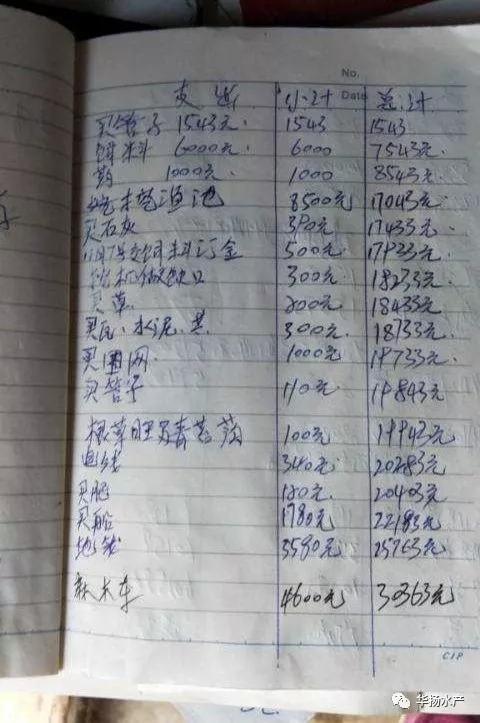 No.
Date
支出 小计 总计
买管子 1543元. 1543 1543
饲料 6000元. 6000 7543元.
药 1000元. 1000 8543元.
挖渔池 8500元 17043元.
买石灰 390元. 17433元.
饲料订金 500元. 17933元.
挖机做缺口 300元. 18233元.
买草. 200元. 18433元.
买瓦. 水泥. 300元. 18733元.
买围网. 1000元 19733元.
买管子 110元. 19843元
100元. 19943元
电线 340元. 20283元
买肥 120元. 20403元
买船 1780元 22183元
地笼 3580元. 25763元
4600元 30363元
C1P
华扬水产